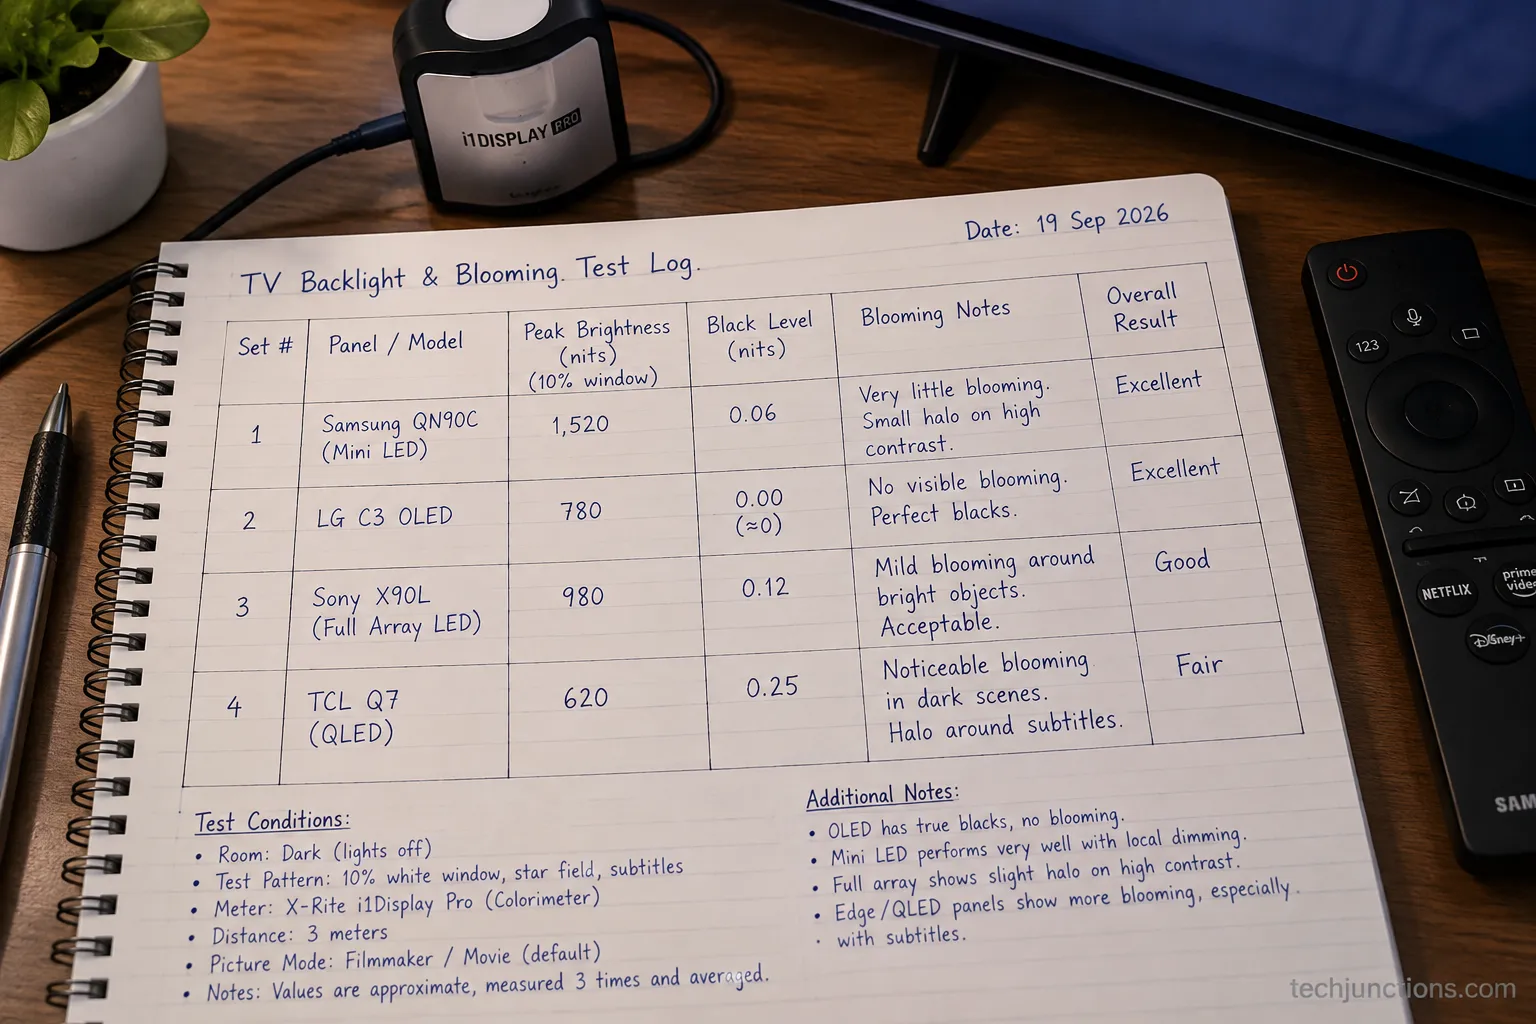 i1DISPLAY PRO
Date: 19 Sep 2026
TV Backlight & Blooming. Test Log.
Set #
Panel / Model
Peak Brightness
(nits)
(10% window)
Black Level
(nits)
Blooming Notes
Overall
Result
1
Samsung QN90C
(Mini LED)
1,520
0.06
Very little blooming.
Small halo on high
contrast.
Excellent
2
LG C3 OLED
780
0.00
(≈0)
No visible blooming.
Perfect blacks.
Excellent
3
Sony X90L
(Full Array LED)
980
0.12
Mild blooming around
bright objects.
Acceptable.
Good
4
TCL Q7
(QLED)
620
0.25
Noticeable blooming
in dark scenes.
Halo around subtitles.
Fair
Test Conditions:
• Room: Dark (lights off)
• Test Pattern: 10% white window, star field, subtitles
• Meter: X-Rite i1Display Pro (Colorimeter)
• Distance: 3 meters
• Picture Mode: Filmmaker / Movie (default)
• Notes: Values are approximate, measured 3 times and averaged.
Additional Notes:
• OLED has true blacks, no blooming.
• Mini LED performs very well with local dimming.
• Full array shows slight halo on high contrast.
• Edge/QLED panels show more blooming, especially.
· with subtitles.
123
NETFLIX
prime
video
Disney+
SAM
techjunctions.com